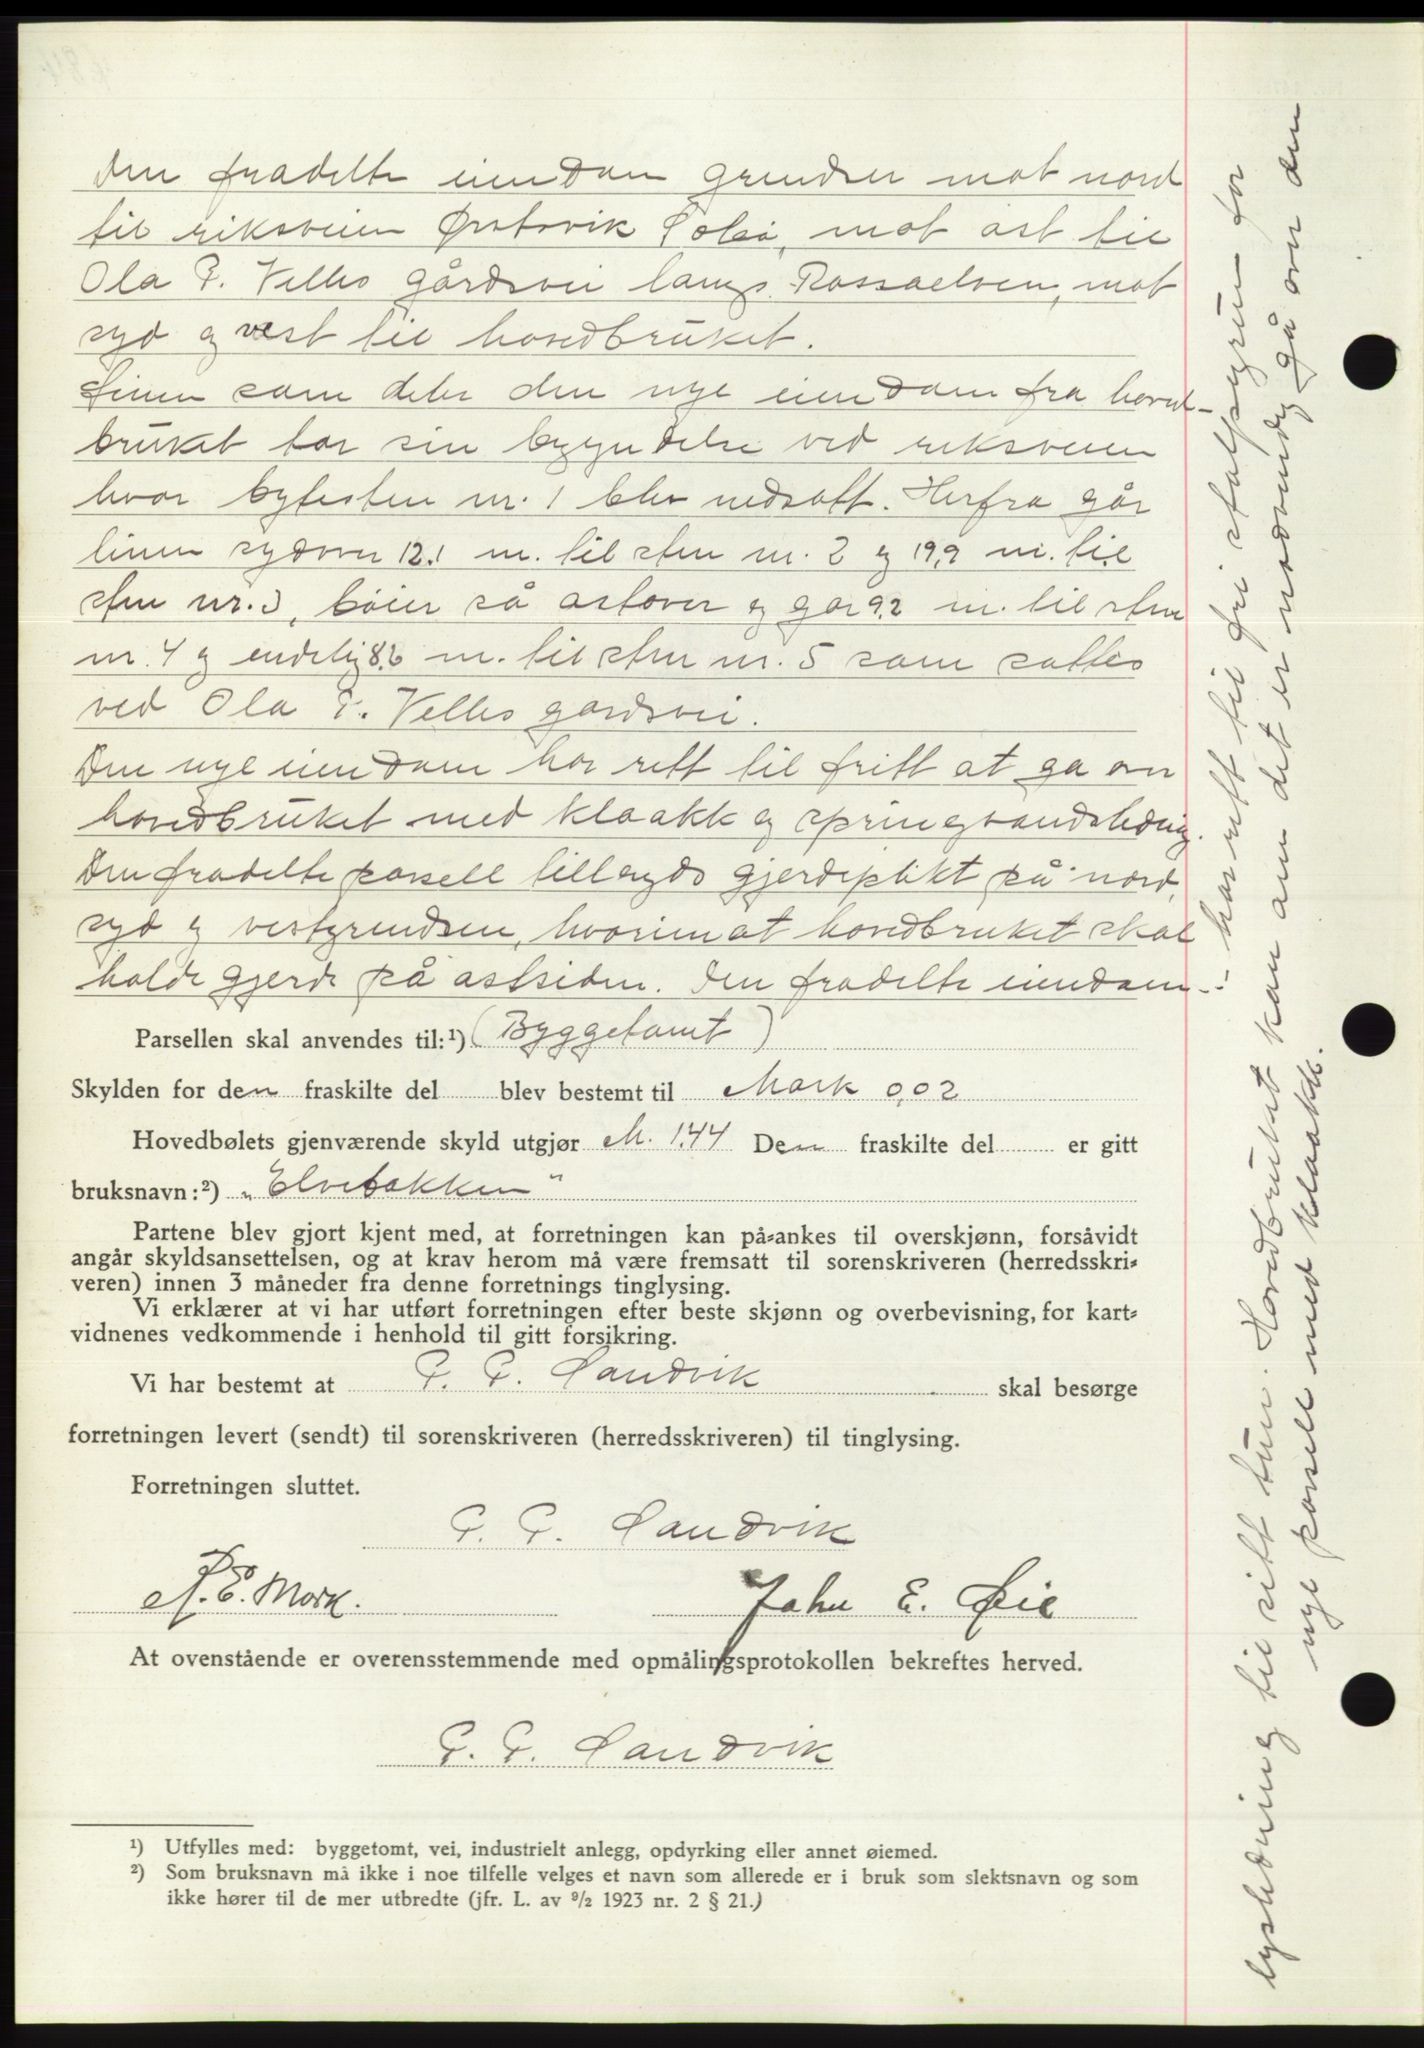 Den fradelte eiendom grendser mot nord
til riksveien Ørstavik Folei, mot ost til
Ola P. Velles gårdsvei langs Rossaelven, mot
syd og vest til hovedbruket.
Linen som deler den nye eiendom fra hoved-
bruket tar sin begyndelse ved riksveien
hvor bytesten nr. 1 blev nedsatt. Herfra går
linen sydover 12.1 m. til sten nr. 2 og 19,9 m. til
sten nr. 3, böier så ostover og gor 9.2 m. til sten
nr. 4 og endelig 8,6 m. til sten nr. 5 som sattes
ved Ola P. Velles gardsvei.
Den nye eiendom har rett til fritt at ga over
hovedbruket med kloakk og springvandsledning.
Den fradelte parsell tillegds gjerdeplikt på nord,
syd og vestgrendsen, hvorimot hovedbruket skal
holde gjerde på ostsiden. Den fradelte eiendom -:
Parsellen skal anvendes til:¹) (Byggetomt)
Skylden for den fraskilte del blev bestemt til Mark 0,02
Hovedbølets gjenværende skyld utgjør M. 1.44 Den fraskilte del er gitt
bruksnavn:²) „Elvebakken"
Partene blev gjort kjent med, at forretningen kan på-ankes til overskjønn, forsåvidt
angår skyldsansettelsen, og at krav herom må være fremsatt til sorenskriveren (herredsskri-
veren) innen 3 måneder fra denne forretnings tinglysing.
Vi erklærer at vi har utført forretningen efter beste skjønn og overbevisning, for kart-
vidnenes vedkommende i henhold til gitt forsikring.
Vi har bestemt at P. P. Sandvik skal besørge
forretningen levert (sendt) til sorenskriveren (herredsskriveren) til tinglysing.
Forretningen sluttet.
P. P. Sandvik
A. E. Mork. John E. Øie
At ovenstående er overensstemmende med opmålingsprotokollen bekreftes herved.
P. P. Sandvik
¹) Utfylles med: byggetomt, vei, industrielt anlegg, opdyrking eller annet øiemed.
²) Som bruksnavn må ikke i noe tilfelle velges et navn som allerede er i bruk som slektsnavn og som
ikke hører til de mer utbredte (jfr. L. av ⁹/₂ 1923 nr. 2 § 21.)
-: har rett til fri stolpegrunn for
lysledning til sitt tun. Hovedbruket kan om det er nødvendig gå over den
nye parsell med kloakk.